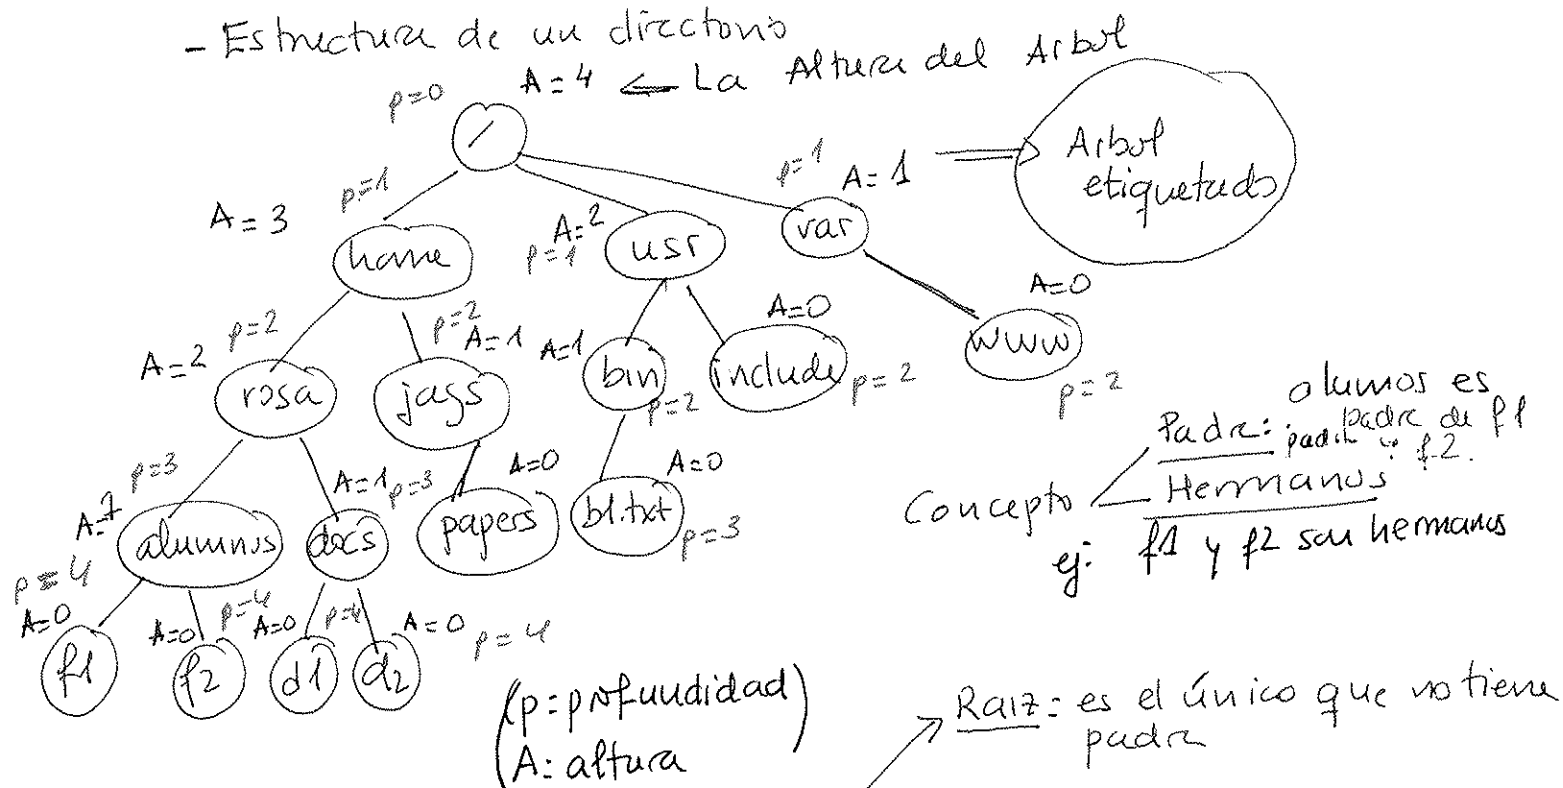 - Estructura de un directorio
p=0 A=4 ← La Altura del Arbol
/
p=1 A=1 ⇒ Arbol etiquetado
A=3 p=1
home
A=2 p=1
usr
var
A=0
www
p=2
A=2 p=2
rosa
p=2 A=1
jags
A=1
bin
p=2
A=0
include
p=2
p=3
A=1
alumnos
A=1 p=3
docs
A=0
papers
A=0
b1.txt
p=3
p=4
A=0
f1
A=0 p=4
f2
A=0 p=4
d1
A=0 p=4
d2
(p=profundidad)
A: altura
Concepto
Padre: alumos es
padre de f1
padre y f2.
Hermanos
ej: f1 y f2 son hermanos
Raiz: es el único que no tiene
padre